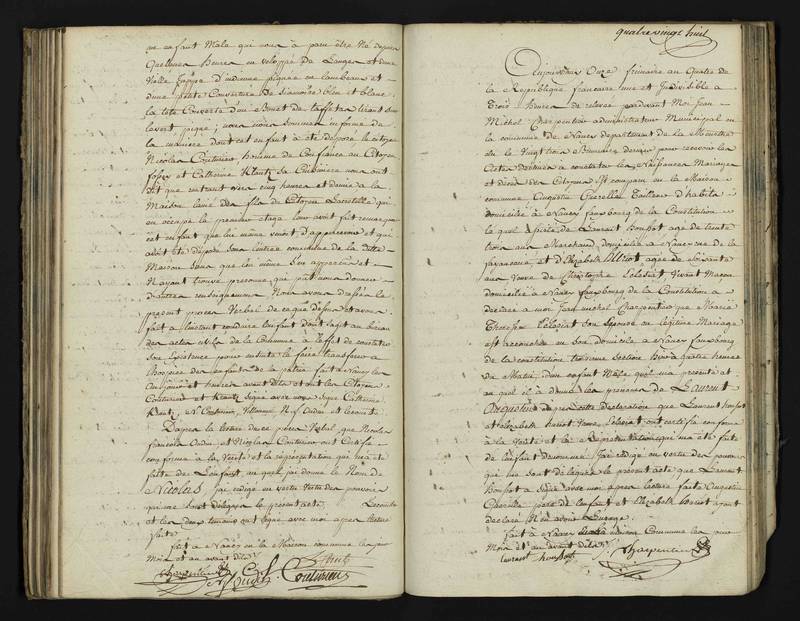 un enfant Male qui nous à paru être Né depuis
quelques heures en veloppé de Langes et d'une
Vielle juppe d'indienne piquée en lambeaux et
d'une petite Couverture de siamoise bleu et blanc
la tête Couverte d'un Bonet de taffetas tirant sur
le vert piqué ; nous nous sommes informé de
la maniere dont cet enfant à été déposé le citoyen
Nicolas Couturieux homme de Confiance au Citoyen
et Catherine Kautz sa Cuisiniere nous ont
dit que entrant vers cinq heures et demie a la
Maison l'ainé des fils du Citoyen Lacretelle qui
en occupe le premier etage leur avoit fait remarquer
cet enfant que lui même venoit d'appercevoir et qui
avoit été déposé sous l'entrée commune de la ditte
Maison sans que lui même s'en apperçut et
N'ayant trouvé personne qui put nous donner
d'autres renseignemens Nous avons dressé le
present procès Verbal de ce que dessus et avons
fait à l'instant conduire l'enfant dont s'agit au bureau
des actes civils de la Commune à l'effet de constater
son Existence pour ensuite le faire transferer a
hospice des enfans de la patrie fait à Nancy les
an jour et heures avant dits et ont les Citoyens
Couturieux et Kautz signé avec nous signé Catherine
Kautz, N Couturieux, Villaume, N. f. Oudin et Lecomte.
D'après la lecture de ce procès Verbal que Nicolas
francois Oudin et Nicolas Couturieux ont Certifié
conforme à la Verité et la représentation qui m'a été
faite de L'enfant au quel j'ai donné le Nom de
Nicolas j'ai rédigé en vertu des pouvoirs
qui me sont délégués le présent acte, Lecomte
et les deux temoins ont signé avec moi apres lecture
faite
fait à Nancy en la Maison commune les jour
Mois et an avant dits
Charpentier Oudin Couturieux
quatre vingt huit
Aujourd'hui Onze frimaire an Quatre de
la République francaise une et Indivisible a
Trois heures de relevée pardevant Moi Jean
Michel Charpentier administrateur Municipal en
la commune de Nancy departement de la Meurthe
élu le Vingt trois Brumaire dernier pour recevoir les
Actes destinés à constater les Naissances Mariages
et décès des Citoyens Est comparu en la Maison
commune Augustin Guerelle Tailleur d'habits
domicilié à Nancy faubourg de la Constitution
le quel assisté de Laurent Houpot agé de trente
trois ans Marchand domicilié a Nancy rue de la
fayancerie et d'Elizabeth Uriot agée de soixante
ans veuve de Christophe Lelorrat Vivant Maçon
domiciliée à Nancy faubourg de la Constitution à
declaré a moi Jean michel Charpentier que Marie
Therese Lelorrat son Epouse en legitime Mariage
est accouchée en son domicile a Nancy faubourg
de la constitution troisieme Section hier à quatre heures
du Matin d'un enfant Male qu'il m'a présenté et
au quel il à donné les prenoms de Laurent
D'après cette declaration que Laurent houpot
et Elizabeth Uriot veuve Lelorrat ont certifié conforme
à la Verité et la Représentation qui m'a été faite
de L'enfant dénommé j'ai redigé en vertu des pouvoirs
qui me sont délégués le présent acte que Laurent
Houpot a signé avec moi apres lecture faite Augustin
Guerelle pere de l'enfant et Elizabeth Uriot ayant
declaré N'en avoir L'usage.
fait à Nancy en la maison Commune les jour
Mois et an avant dits
laurent houpot Charpentier